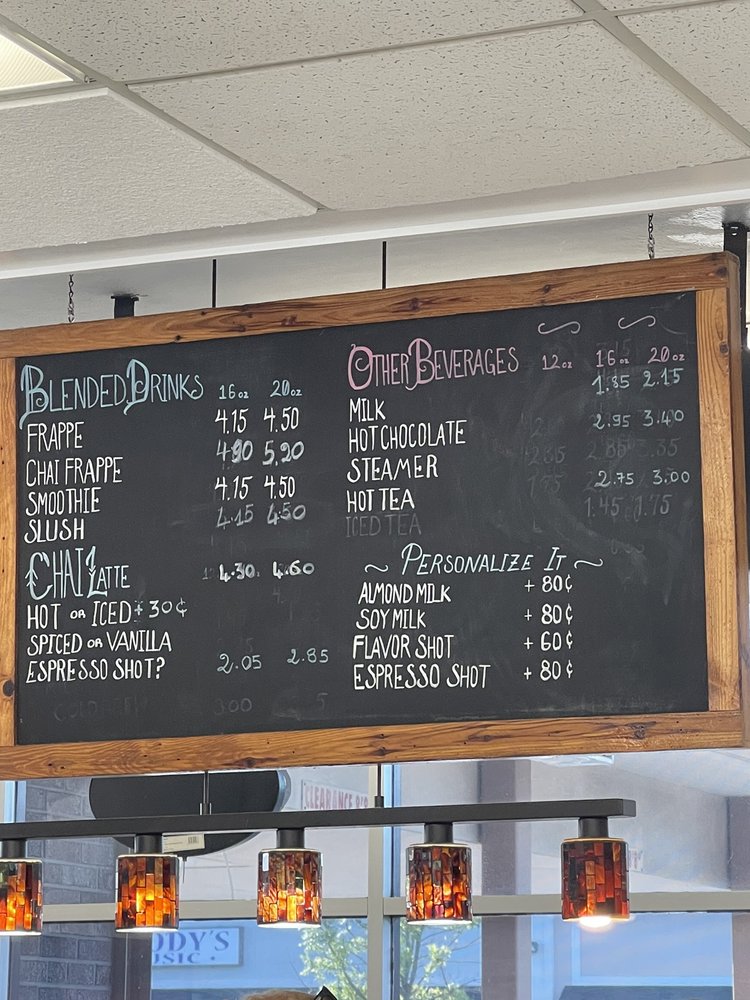 BLENDED DRINKS 16oz 20oz
FRAPPE 4.15 4.50
CHAI FRAPPE 4.90 5.20
SMOOTHIE 4.15 4.50
SLUSH 4.15 4.50
CHAI LATTE 4.30 4.60
HOT OR ICED +30¢
SPICED OR VANILLA
ESPRESSO SHOT? 2.05 2.85
OTHER BEVERAGES 12oz 16oz 20oz
MILK 1.85 2.15
HOT CHOCOLATE 2.95 3.40
STEAMER
HOT TEA 2.75 3.00
ICED TEA 1.45 1.75
~ PERSONALIZE IT ~
ALMOND MILK + 80¢
SOY MILK + 80¢
FLAVOR SHOT + 60¢
ESPRESSO SHOT + 80¢
CLEARANCE